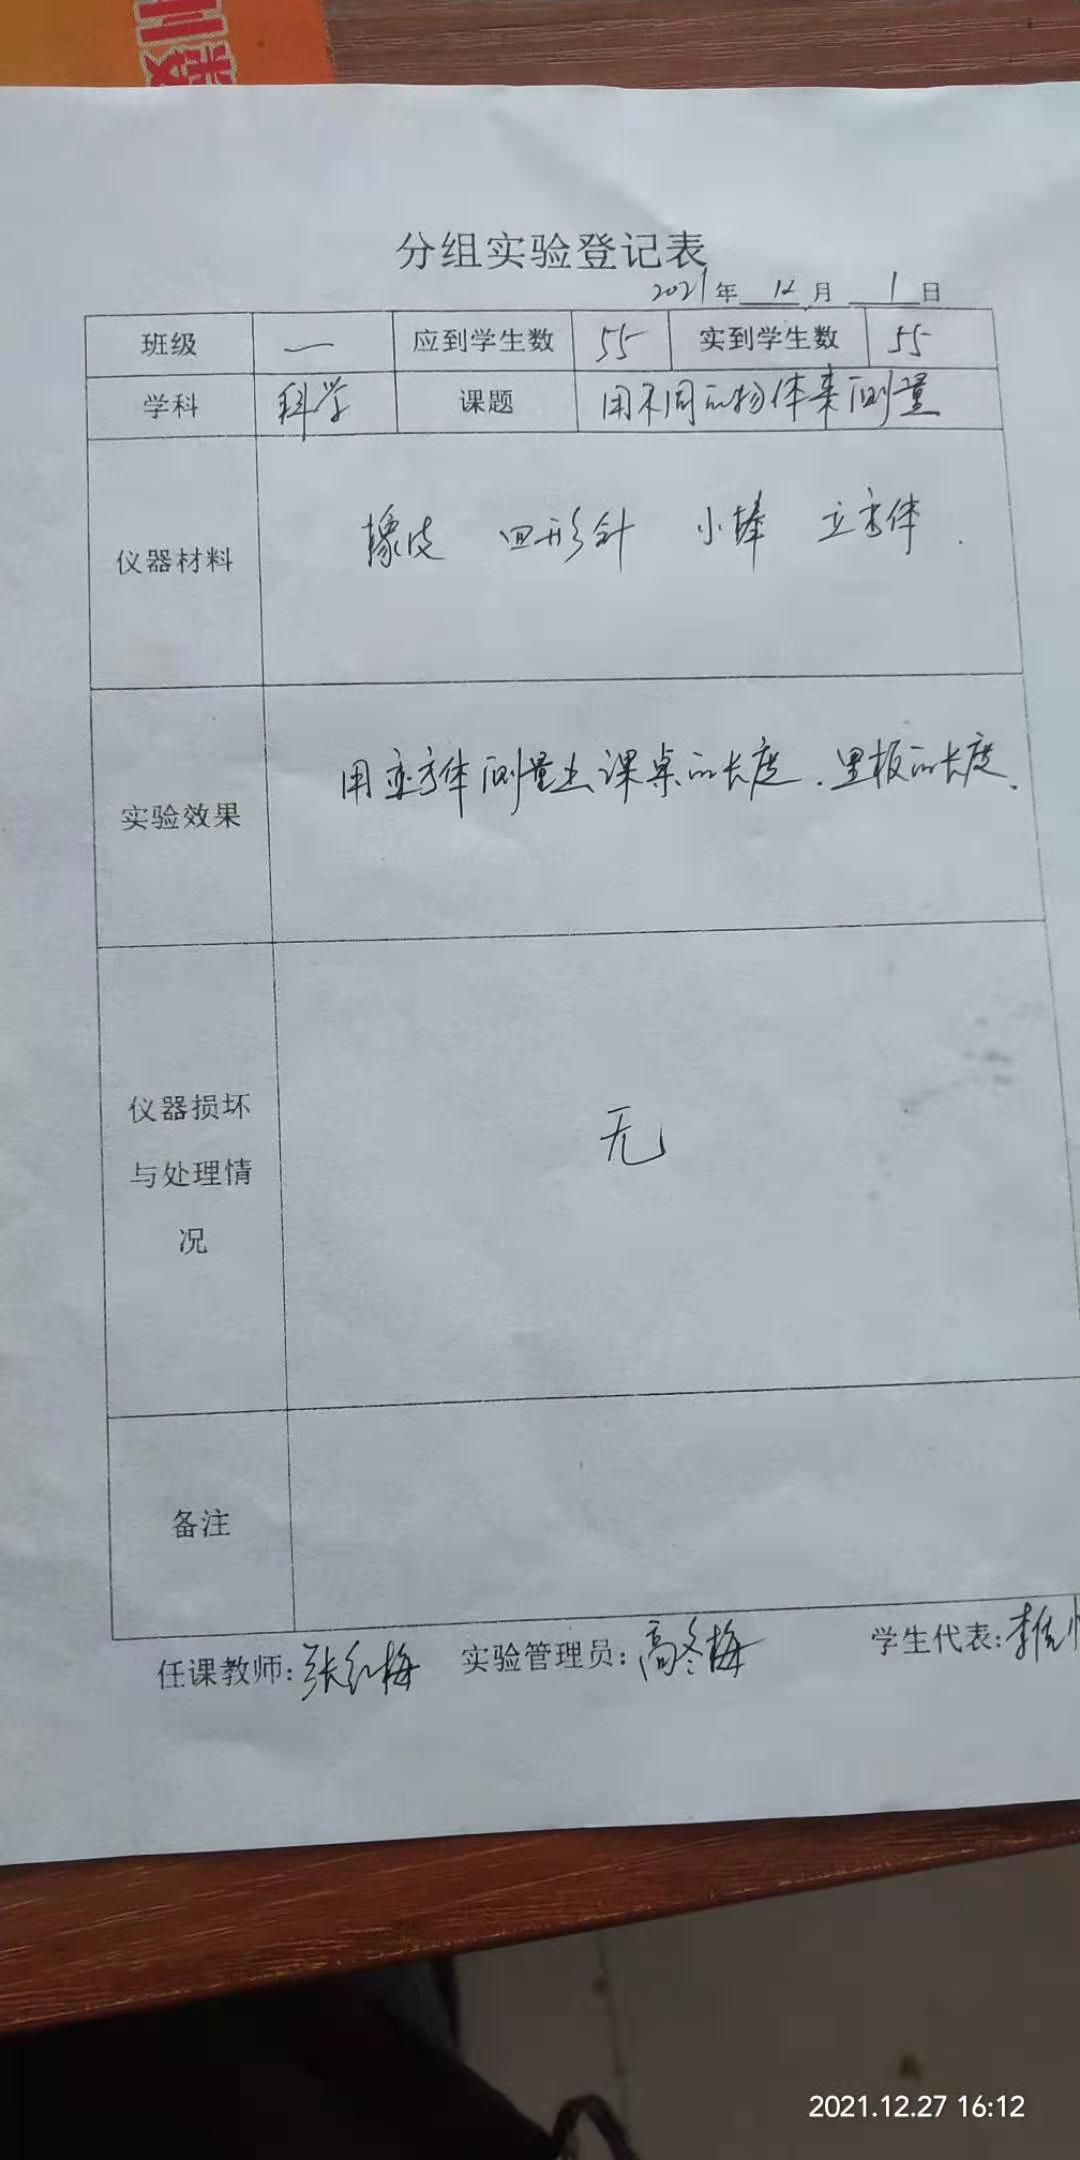 分组实验登记表
2021年 12 月 1 日
班级 一 应到学生数 55 实到学生数 55
学科 科学 课题 用不同的物体来测量
仪器材料 橡皮 回形针 小棒 立方体.
实验效果 用立方体测量出课桌的长度、黑板的长度、
仪器损坏
与处理情
况
无
备注
任课教师:张红梅 实验管理员:高冬梅 学生代表:李
2021.12.27 16:12